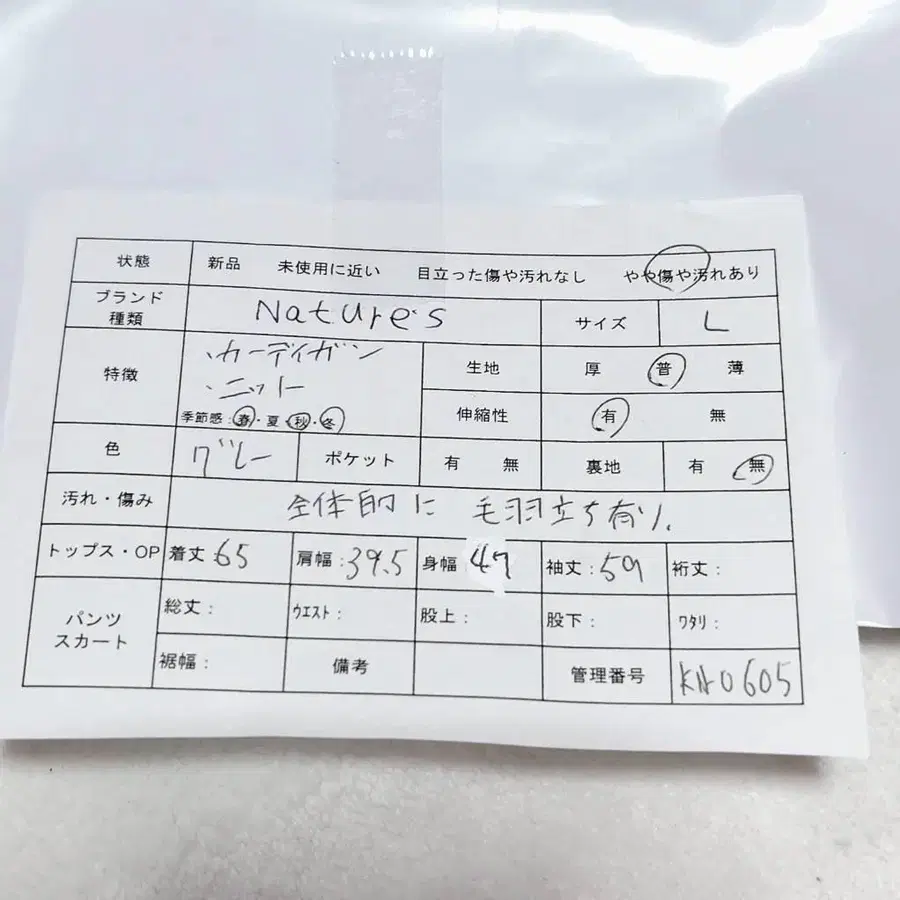 状態 新品 未使用に近い 目立った傷や汚れなし やや傷や汚れあり
ブランド種類 Nature's サイズ L
特徴 ・カーディガン
・ニット
季節感：春・夏・秋・冬
生地 厚 普 薄
伸縮性 有 無
色 グレー ポケット 有 無 裏地 有 無
汚れ・傷み 全体的に 毛羽立ち有り.
トップス・OP 着丈 65 肩幅：39.5 身幅 47 袖丈：59 裄丈：
パンツ
スカート
総丈： ウエスト： 股上： 股下： ワタリ：
裾幅： 備考 管理番号 KN0605